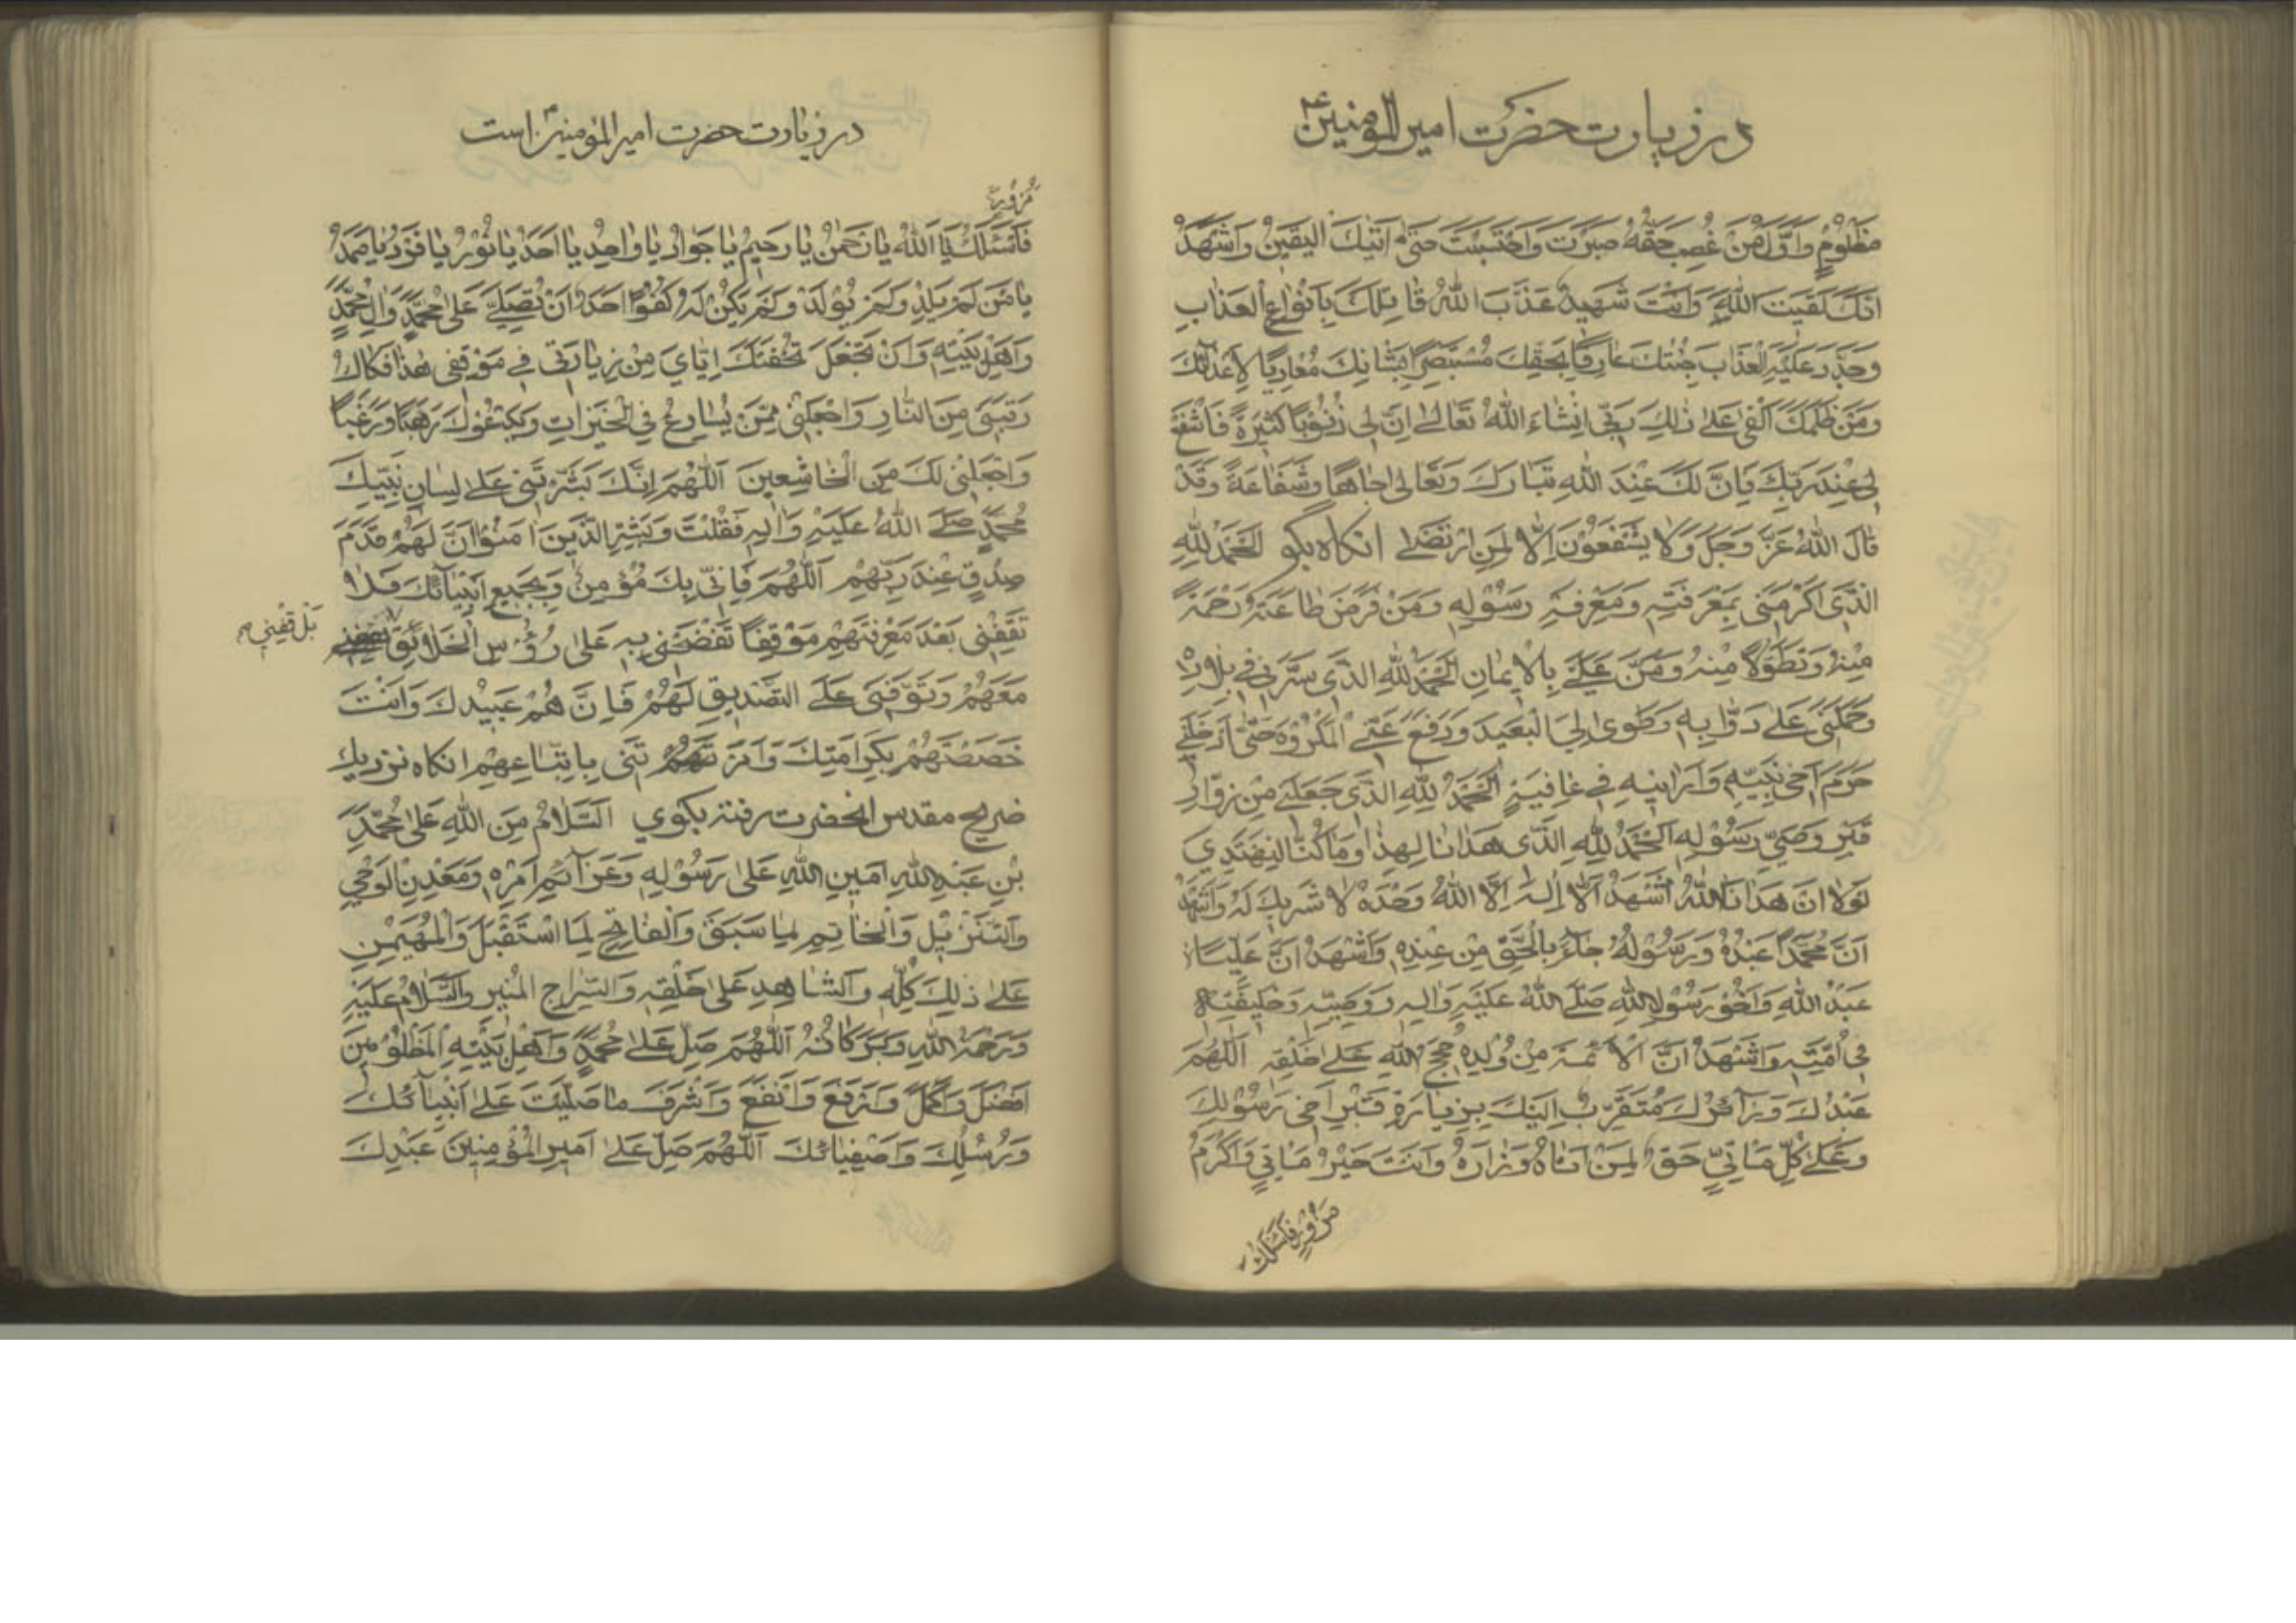 در زیارت حضرت امیر المؤمنین ع
مَظْلُومٍ وَاَوَّلُ مَنْ غُصِبَ حَقُّهُ صَبَرْتَ وَاحْتَسَبْتَ حَتّٰى اَتٰیكَ الْیَقِینُ وَاَشْهَدُ
اَنَّكَ لَقِیتَ اللهَ وَاَنْتَ شَهِیدٌ عَذَّبَ اللهُ قَاتِلَكَ بِاَنْوَاعِ الْعَذَابِ
وَجَدَّدَ عَلَیْهِ الْعَذَابَ جِئْتُكَ عَارِفًا بِحَقِّكَ مُسْتَبْصِرًا بِشَانِكَ مُعَادِیًا لِاَعْدَائِكَ
وَمَنْ ظَلَمَكَ اَلْقٰى عَلٰى ذٰلِكَ رَبِّی اِنْشَاءَ اللهُ تَعَالٰى اِنَّ لِی ذُنُوبًا كَثِیرَةً فَاشْفَعْ
لِی عِنْدَ رَبِّكَ فَاِنَّ لَكَ عِنْدَ اللهِ تَبَارَكَ وَتَعَالٰى جَاهًا وَشَفَاعَةً وَقَدْ
قَالَ اللهُ عَزَّ وَجَلَّ وَلَا یَشْفَعُوْنَ اِلَّا لِمَنِ ارْتَضٰى انکاه بکو اَلْحَمْدُ لِلّٰهِ
الَّذِی اَكْرَمَنِی بِمَعْرِفَتِهِ وَمَعْرِفَةِ رَسُوْلِهِ وَمَنْ فَرَضَ طَاعَتَهُ رَحْمَةً
مِنْهُ وَتَطَوُّلًا مِنْهُ وَمَنَّ عَلَیَّ بِالْاِیمَانِ اَلْحَمْدُ لِلّٰهِ الَّذِی سَیَّرَنِی فِی بِلَادِهِ
وَحَمَلَنِی عَلٰى دَوَابِّهِ وَطَوٰى لِیَ الْبَعِیدَ وَدَفَعَ عَنِّی الْمَكْرُوْهَ حَتّٰى اَدْخَلَنِی
حَرَمَ اَخِی نَبِیِّهِ وَاَرَانِیهِ فِی عَافِیَةٍ اَلْحَمْدُ لِلّٰهِ الَّذِی جَعَلَنِی مِنْ زُوَّارِ
قَبْرِ وَصِیِّ رَسُوْلِهِ اَلْحَمْدُ لِلّٰهِ الَّذِی هَدَانَا لِهٰذَا وَمَا كُنَّا لِنَهْتَدِیَ
لَوْلَا اَنْ هَدَانَا اللهُ اَشْهَدُ اَنْ لَا اِلٰهَ اِلَّا اللهُ وَحْدَهُ لَا شَرِیكَ لَهُ وَاَشْهَدُ
اَنَّ مُحَمَّدًا عَبْدُهُ وَرَسُوْلُهُ جَاءَ بِالْحَقِّ مِنْ عِنْدِهِ وَاَشْهَدُ اَنَّ عَلِیًّا
عَبْدُ اللهِ وَاَخُوْ رَسُوْلِ اللهِ صَلَّى اللهُ عَلَیْهِ وَاٰلِهِ وَوَصِیُّهُ وَخَلِیفَتُهُ
فِی اُمَّتِهِ وَاَشْهَدُ اَنَّ الْاَئِمَّةَ مِنْ وُلْدِهِ حُجَجُ اللهِ عَلٰى خَلْقِهِ اَللّٰهُمَّ
عَبْدُكَ وَزَآئِرُكَ مُتَقَرِّبٌ اِلَیْكَ بِزِیَارَةِ قَبْرِ اَخِی رَسُوْلِكَ
وَعَلٰى كُلِّ مَاتِیٍّ حَقٌّ لِمَنْ اَتَاهُ وَزَارَهُ وَاَنْتَ خَیْرُ مَاتِیٍّ وَاَكْرَمُ
مَزُوْرٍ فَاَسْئَلُكَ
در زیارت حضرت امیر المؤمنین است
مَزُوْرٍ
فَاَسْئَلُكَ یَا اَللهُ یَا رَحْمٰنُ یَا رَحِیمُ یَا جَوَادُ یَا وَاحِدُ یَا اَحَدُ یَا نُوْرُ یَا فَرْدُ یَا صَمَدُ
یَا مَنْ لَمْ یَلِدْ وَلَمْ یُوْلَدْ وَلَمْ یَكُنْ لَهُ كُفُوًا اَحَدٌ اَنْ تُصَلِّیَ عَلٰى مُحَمَّدٍ وَاٰلِ مُحَمَّدٍ
وَاَهْلِ بَیْتِهِ وَاَنْ تَجْعَلَ تُحْفَتَكَ اِیَّایَ مِنْ زِیَارَتِی فِی مَوْقِفِی هٰذَا فَكَاكَ
رَقَبَتِی مِنَ النَّارِ وَاجْعَلْنِی مِمَّنْ یُسَارِعُ فِی الْخَیْرَاتِ وَیَدْعُوْكَ رَهَبًا وَرَغَبًا
وَاجْعَلْنِی لَكَ مِنَ الْخَاشِعِینَ اَللّٰهُمَّ اِنَّكَ بَشَّرْتَنِی عَلٰى لِسَانِ نَبِیِّكَ
مُحَمَّدٍ صَلَّى اللهُ عَلَیْهِ وَاٰلِهِ فَقُلْتَ وَبَشِّرِ الَّذِینَ اٰمَنُوْا اَنَّ لَهُمْ قَدَمَ
صِدْقٍ عِنْدَ رَبِّهِمْ اَللّٰهُمَّ فَاِنِّی بِكَ مُؤْمِنٌ وَبِجَمِیعِ اَنْبِیَآئِكَ فَلَا
تَقِفْنِی بَعْدَ مَعْرِفَتِهِمْ مَوْقِفًا تَفْضَحُنِی بِهِ عَلٰى رُؤُسِ الْخَلَائِقِ
بَلْ قِفْنِی
مَعَهُمْ وَتَوَفَّنِی عَلَى التَّصْدِیقِ لَهُمْ فَاِنَّهُمْ عَبِیدُكَ وَاَنْتَ
خَصَصْتَهُمْ بِكَرَامَتِكَ وَاَمَرْتَنِی بِاتِّبَاعِهِمْ انکاه نزدیك
ضریح مقدس انحضرت رفته بکوی اَلسَّلَامُ مِنَ اللهِ عَلٰى مُحَمَّدِ
بْنِ عَبْدِ اللهِ اَمِینِ اللهِ عَلٰى رَسُوْلِهِ وَعَزَآئِمِ اَمْرِهِ وَمَعْدِنِ الْوَحْیِ
وَالتَّنْزِیلِ وَالْخَاتِمِ لِمَا سَبَقَ وَالْفَاتِحِ لِمَا اسْتَقْبَلَ وَالْمُهَیْمِنِ
عَلٰى ذٰلِكَ كُلِّهِ وَالشَّاهِدِ عَلٰى خَلْقِهِ وَالسِّرَاجِ الْمُنِیرِ وَالسَّلَامُ عَلَیْهِ
وَرَحْمَةُ اللهِ وَبَرَكَاتُهُ اَللّٰهُمَّ صَلِّ عَلٰى مُحَمَّدٍ وَاَهْلِ بَیْتِهِ الْمَظْلُوْمِینَ
اَفْضَلَ وَاَكْمَلَ وَاَرْفَعَ وَاَنْفَعَ وَاَشْرَفَ مَا صَلَّیْتَ عَلٰى اَنْبِیَآئِكَ
وَرُسُلِكَ وَاَصْفِیَائِكَ اَللّٰهُمَّ صَلِّ عَلٰى اَمِیرِ الْمُؤْمِنِینَ عَبْدِكَ